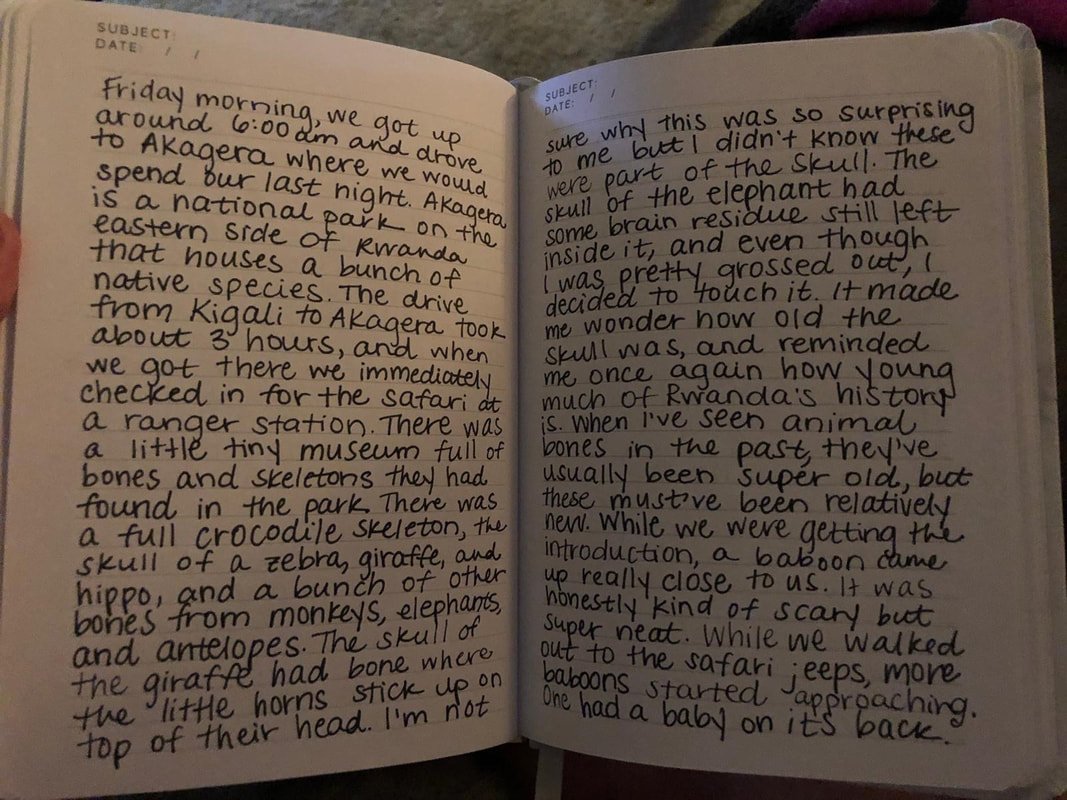 SUBJECT:
DATE: / /
Friday morning, we got up
around 6:00 am and drove
to Akagera where we would
spend our last night. Akagera
is a national park on the
eastern side of Rwanda
that houses a bunch of
native species. The drive
from Kigali to Akagera took
about 3 hours, and when
we got there we immediately
checked in for the safari at
a ranger station. There was
a little tiny museum full of
bones and skeletons they had
found in the park. There was
a full crocodile skeleton, the
skull of a zebra, giraffe, and
hippo, and a bunch of other
bones from monkeys, elephants,
and antelopes. The skull of
the giraffe had bone where
the little horns stick up on
top of their head. I'm not
SUBJECT:
DATE: / /
sure why this was so surprising
to me but I didn't know these
were part of the skull. The
skull of the elephant had
some brain residue still left
inside it, and even though
I was pretty grossed out, I
decided to touch it. It made
me wonder how old the
skull was, and reminded
me once again how young
much of Rwanda's history
is. When I've seen animal
bones in the past, they've
usually been super old, but
these must've been relatively
new. While we were getting the
introduction, a baboon came
up really close to us. It was
honestly kind of scary but
super neat. While we walked
out to the safari jeeps, more
baboons started approaching.
One had a baby on it's back.